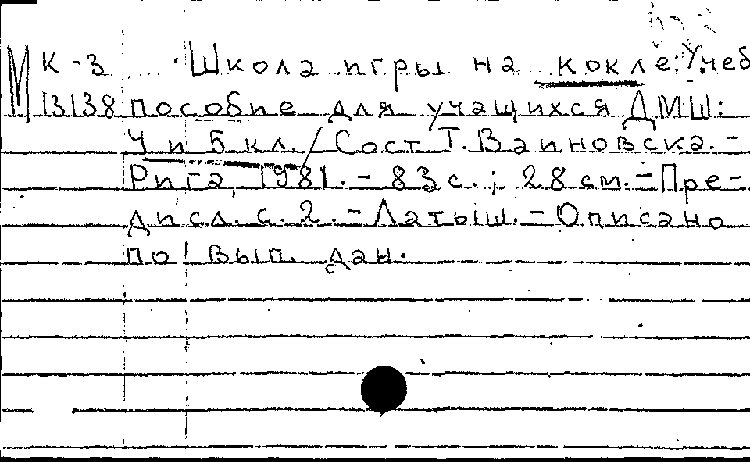 М К-3 Школа игры на кокле: Учеб.
13138 пособие для учащихся ДМШ:
4 и 5 кл. / Сост. Т. Ваиновска. -
Рига, 1981. - 83 с.; 28 см. - Пре-
дисл. с. 2. - Латыш. - Описано
по вып. дан.